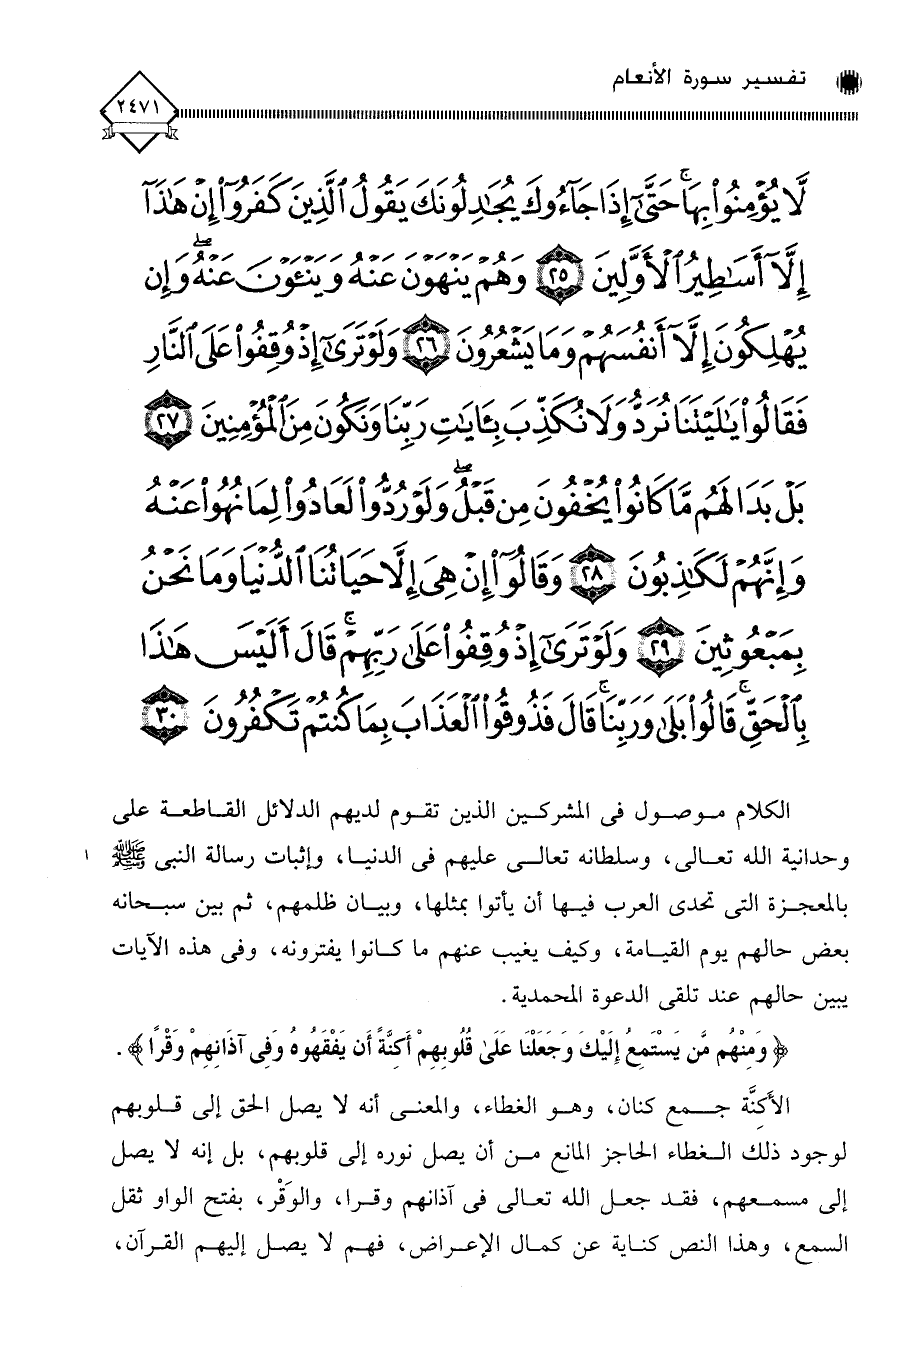 تفسير سورة الأنعام
٢٤٧١
لَّا يُؤْمِنُوا۟ بِهَا ۚ حَتَّىٰٓ إِذَا جَآءُوكَ يُجَٰدِلُونَكَ يَقُولُ ٱلَّذِينَ كَفَرُوٓا۟ إِنْ هَٰذَآ
إِلَّآ أَسَٰطِيرُ ٱلْأَوَّلِينَ ٢٥ وَهُمْ يَنْهَوْنَ عَنْهُ وَيَنْـَٔوْنَ عَنْهُ ۖ وَإِن
يُهْلِكُونَ إِلَّآ أَنفُسَهُمْ وَمَا يَشْعُرُونَ ٢٦ وَلَوْ تَرَىٰٓ إِذْ وُقِفُوا۟ عَلَى ٱلنَّارِ
فَقَالُوا۟ يَٰلَيْتَنَا نُرَدُّ وَلَا نُكَذِّبَ بِـَٔايَٰتِ رَبِّنَا وَنَكُونَ مِنَ ٱلْمُؤْمِنِينَ ٢٧
بَلْ بَدَا لَهُم مَّا كَانُوا۟ يُخْفُونَ مِن قَبْلُ ۖ وَلَوْ رُدُّوا۟ لَعَادُوا۟ لِمَا نُهُوا۟ عَنْهُ
وَإِنَّهُمْ لَكَٰذِبُونَ ٢٨ وَقَالُوٓا۟ إِنْ هِىَ إِلَّا حَيَاتُنَا ٱلدُّنْيَا وَمَا نَحْنُ
بِمَبْعُوثِينَ ٢٩ وَلَوْ تَرَىٰٓ إِذْ وُقِفُوا۟ عَلَىٰ رَبِّهِمْ ۚ قَالَ أَلَيْسَ هَٰذَا
بِٱلْحَقِّ ۚ قَالُوا۟ بَلَىٰ وَرَبِّنَا ۚ قَالَ فَذُوقُوا۟ ٱلْعَذَابَ بِمَا كُنتُمْ تَكْفُرُونَ ٣٠
الكلام موصول فى المشركين الذين تقوم لديهم الدلائل القاطعة على
وحدانية الله تعالى، وسلطانه تعالى عليهم فى الدنيا، وإثبات رسالة النبى ﷺ ١
بالمعجزة التى تحدى العرب فيها أن يأتوا بمثلها، وبيان ظلمهم، ثم بين سبحانه
بعض حالهم يوم القيامة، وكيف يغيب عنهم ما كانوا يفترونه، وفى هذه الآيات
يبين حالهم عند تلقى الدعوة المحمدية.
﴿ وَمِنْهُم مَّن يَسْتَمِعُ إِلَيْكَ وَجَعَلْنَا عَلَىٰ قُلُوبِهِمْ أَكِنَّةً أَن يَفْقَهُوهُ وَفِى آذَانِهِمْ وَقْرًا ﴾.
الأَكِنَّة جمع كنان، وهو الغطاء، والمعنى أنه لا يصل الحق إلى قلوبهم
لوجود ذلك الغطاء الحاجز المانع من أن يصل نوره إلى قلوبهم، بل إنه لا يصل
إلى مسمعهم، فقد جعل الله تعالى فى آذانهم وقرا، والوَقْر، بفتح الواو ثقل
السمع، وهذا النص كناية عن كمال الإعراض، فهم لا يصل إليهم القرآن،